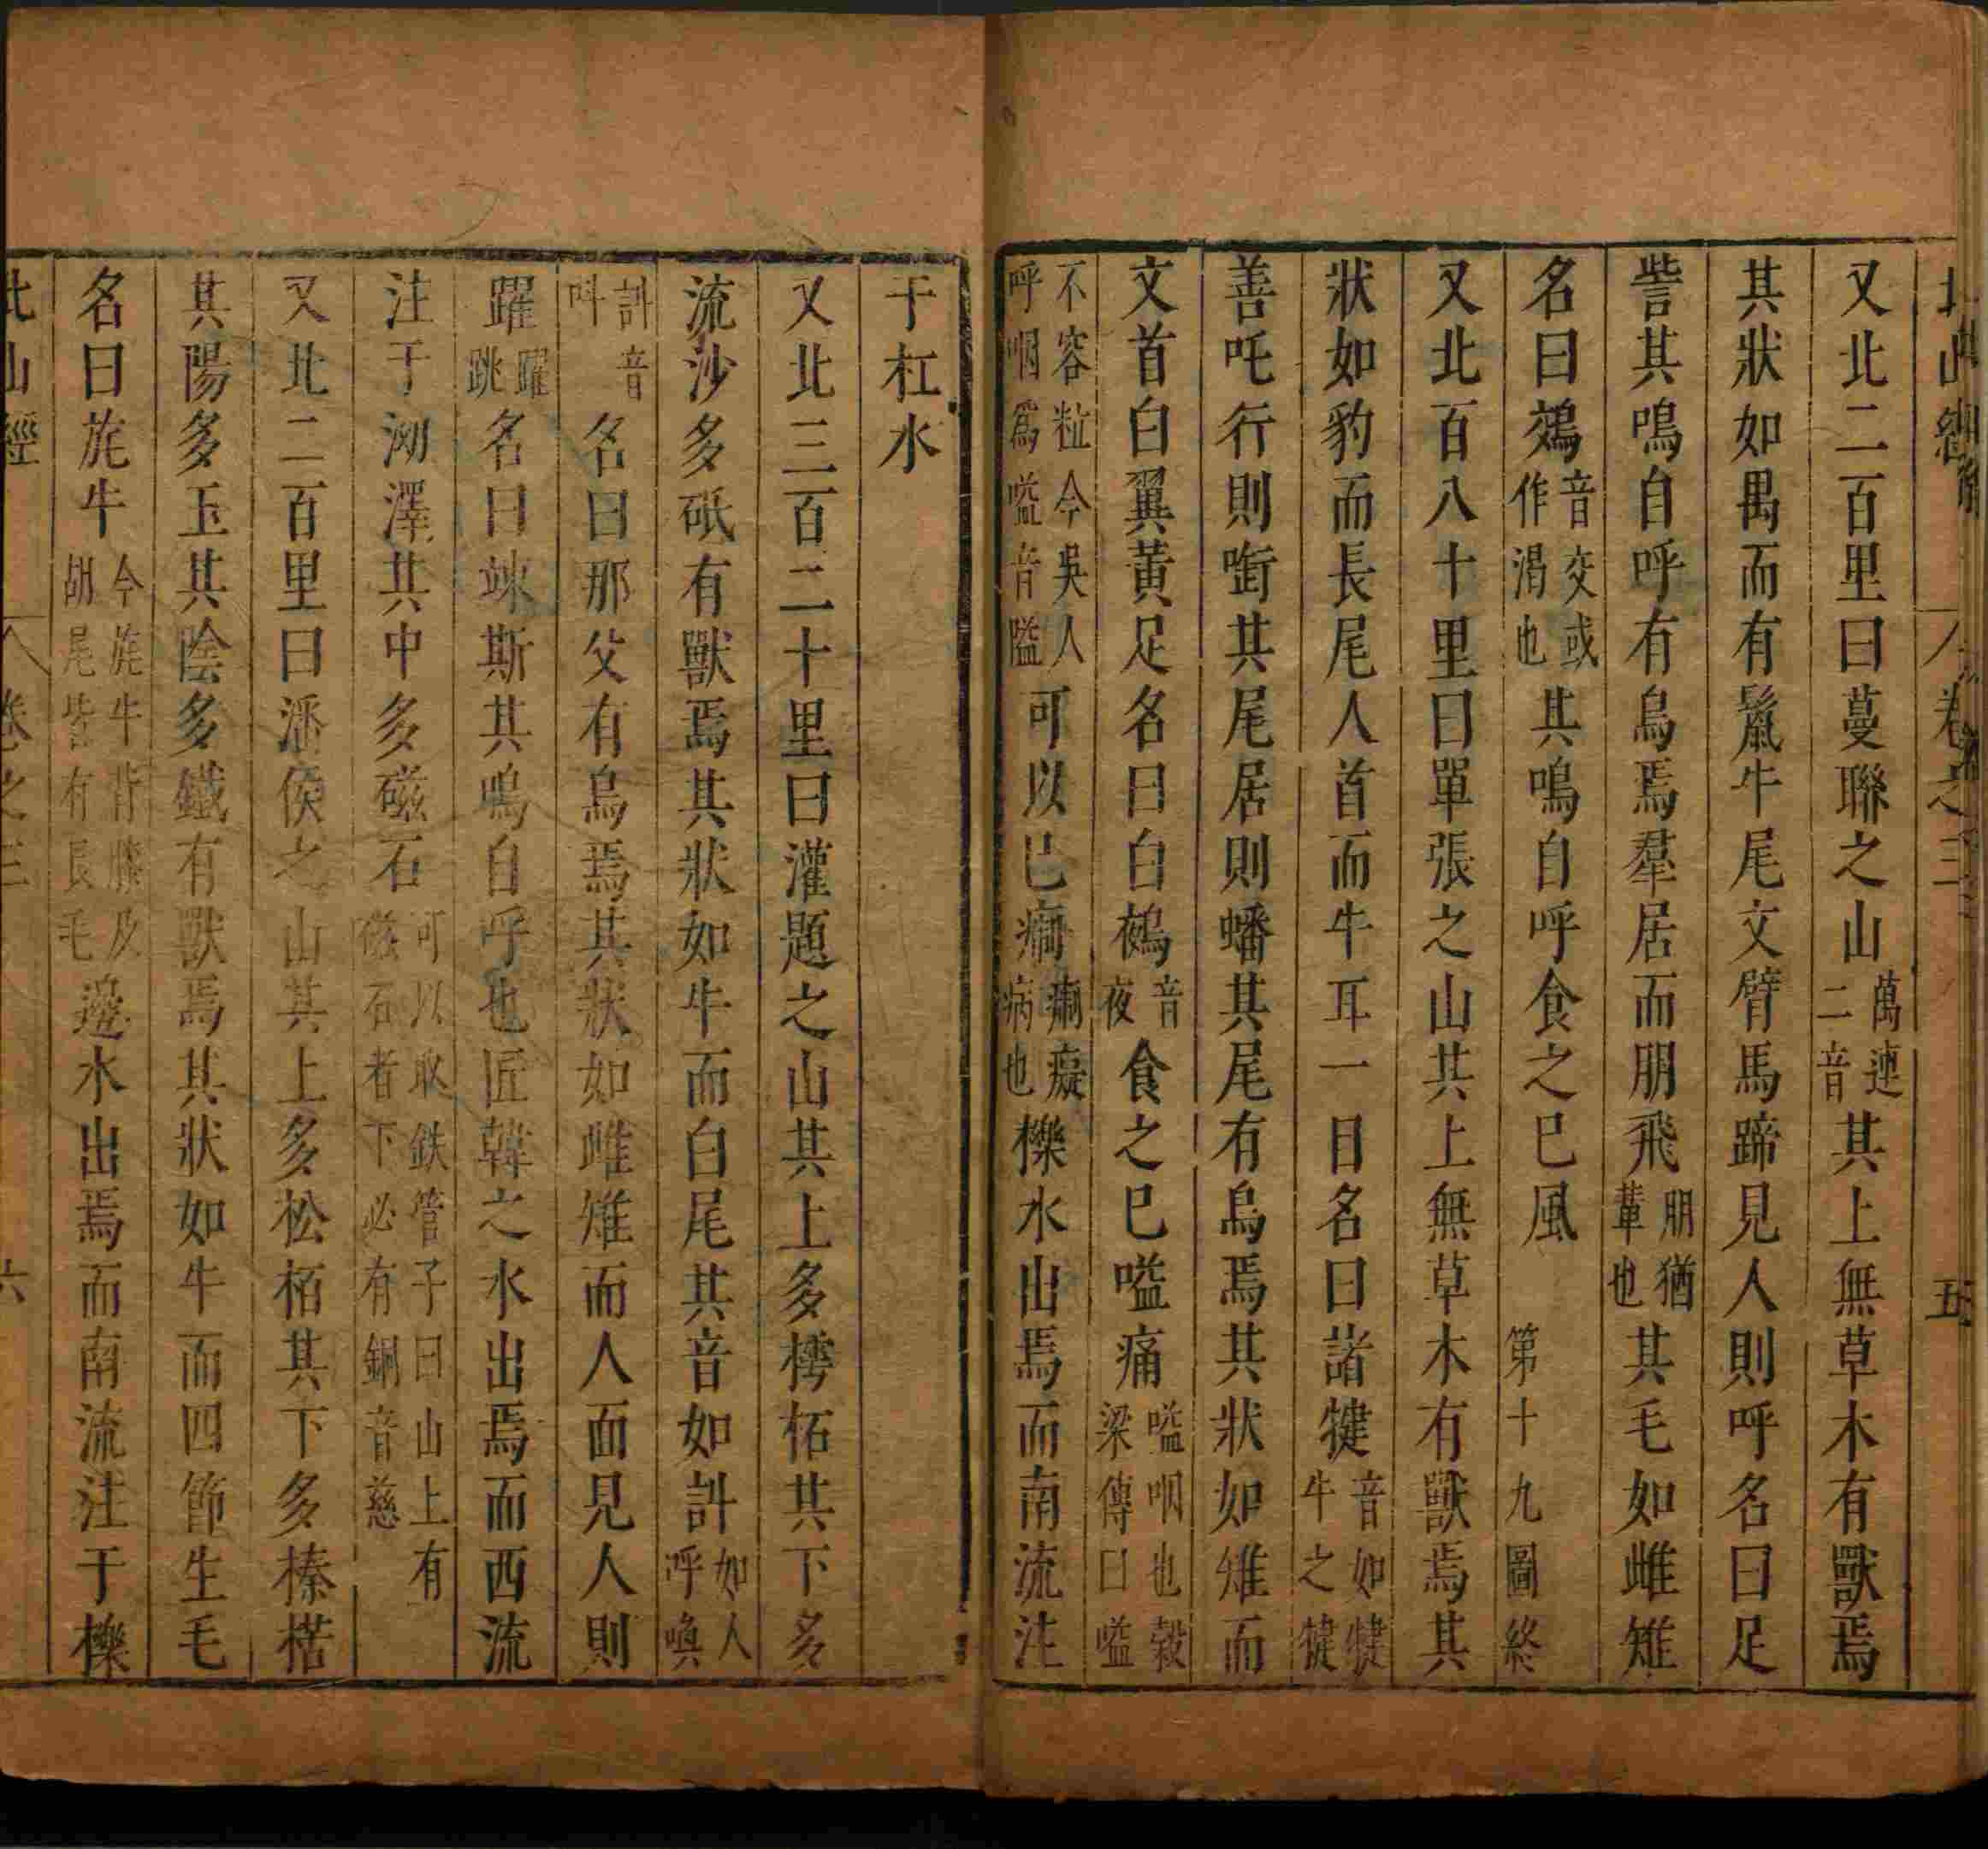 北山經 卷之三 五
又北二百里曰蔓聯之山萬連二音其上無草木有獸焉
其狀如禺而有鬣牛尾文臂馬蹄見人則呼名曰足
訾其鳴自呼有鳥焉羣居而朋飛朋猶輩也其毛如雌雉
名曰鵁音交或作渴也其鳴自呼食之已風 第十九圖終
又北百八十里曰單張之山其上無草木有獸焉其
狀如豹而長尾人首而牛耳一目名曰諸犍音如犍牛之犍
善吒行則銜其尾居則蟠其尾有鳥焉其狀如雉而
文首白翼黃足名曰白鵺音夜食之已嗌痛嗌咽也穀梁傳曰嗌
不容粒今吳人呼咽為嗌音隘可以已癇癇癡病也櫟水出焉而南流注
于杠水
又北三百二十里曰灌題之山其上多樗柘其下多
流沙多砥有獸焉其狀如牛而白尾其音如訆如人呼喚
訆音呌名曰那父有鳥焉其狀如雌雉而人面見人則
躍躍跳名曰竦斯其鳴自呼也匠韓之水出焉而西流
注于泑澤其中多磁石可以取鉄管子曰山上有磁石者下必有銅音慈
又北二百里曰潘侯之山其上多松栢其下多榛楛
其陽多玉其陰多鐵有獸焉其狀如牛而四節生毛
名曰旄牛今旄牛背膝及胡尾皆有長毛邊水出焉而南流注于櫟
北山經 卷之三 六